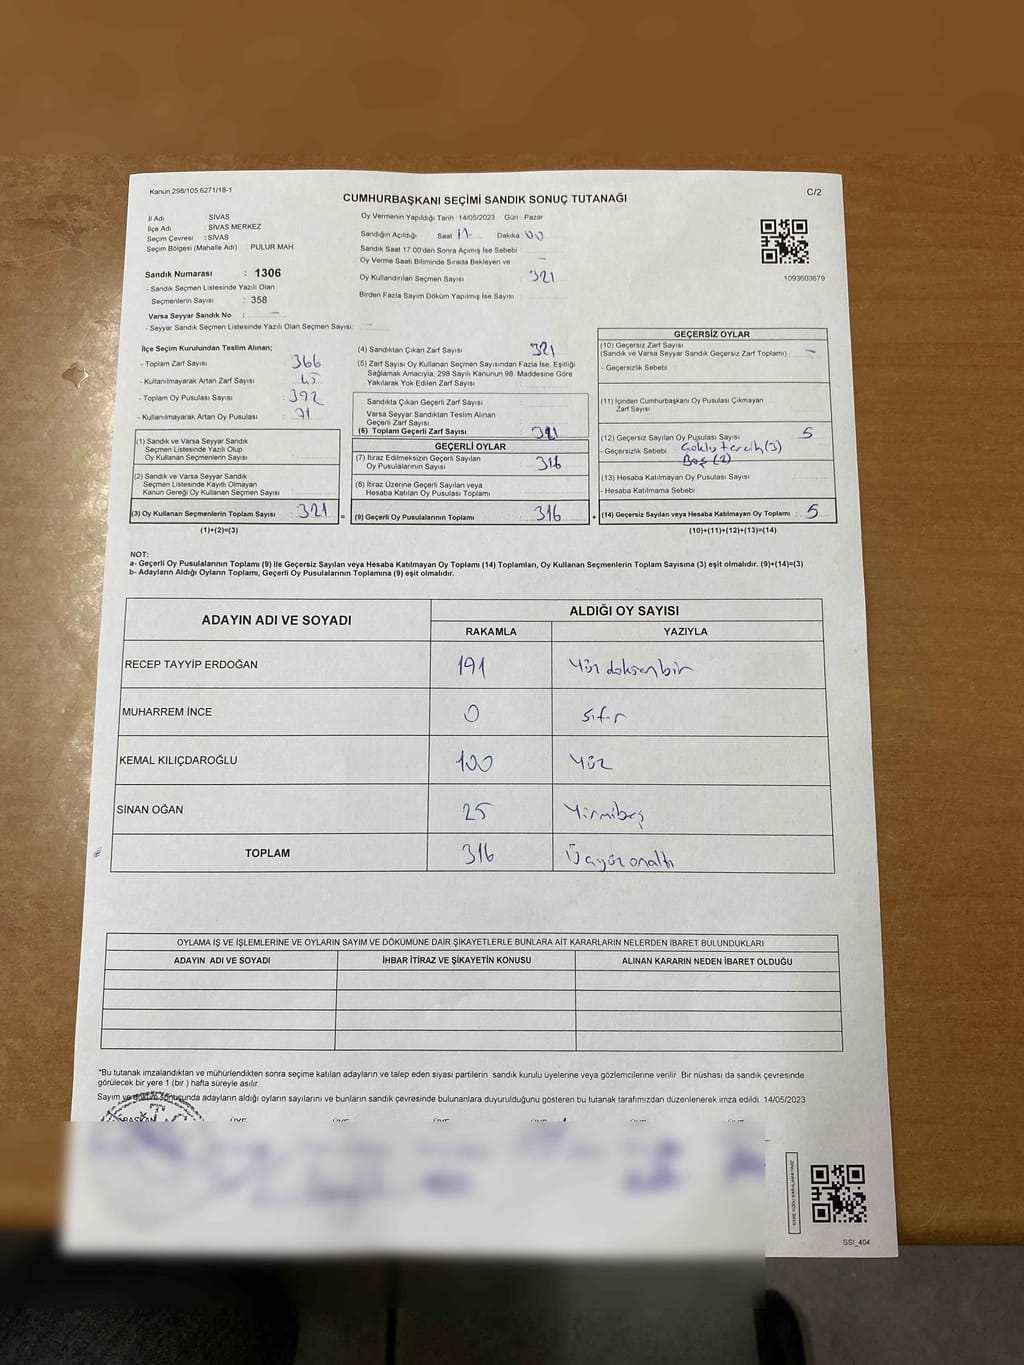 Kanun,298/105,6271/18-1
C/2
CUMHURBAŞKANI SEÇİMİ SANDIK SONUÇ TUTANAĞI
İl Adı : SİVAS
İlçe Adı : SİVAS MERKEZ
Seçim Çevresi : SİVAS
Seçim Bölgesi (Mahalle Adı) PULUR MAH.
Sandık Numarası : 1306
- Sandık Seçmen Listesinde Yazılı Olan
Seçmenlerin Sayısı : 358
Varsa Seyyar Sandık No : —
- Seyyar Sandık Seçmen Listesinde Yazılı Olan Seçmen Sayısı: —
Oy Vermenin Yapıldığı Tarih :14/05/2023 Gün : Pazar
Sandığın Açıldığı Saat 17 Dakika 00
Sandık Saat 17.00'den Sonra Açımış İse Sebebi
Oy Verme Saati Bitiminde Sırada Bekleyen ve —
Oy Kullandırılan Seçmen Sayısı 321
Birden Fazla Sayım Döküm Yapılmış İse Sayısı
1093603679
İlçe Seçim Kurulundan Teslim Alınan;
- Toplam Zarf Sayısı 366
- Kullanılmayarak Artan Zarf Sayısı 45
- Toplam Oy Pusulası Sayısı 392
- Kullanılmayarak Artan Oy Pusulası 71
(1) Sandık ve Varsa Seyyar Sandık
Seçmen Listesinde Yazılı Olup
Oy Kullanan Seçmen Sayısı
(2) Sandık ve Varsa Seyyar Sandık
Seçmen Listesinde Kayıtlı Olmayan
Kanun Gereği Oy Kullanan Seçmen Sayısı
(3) Oy Kullanan Seçmenlerin Toplam Sayısı 321 =
(1)+(2)=(3)
(4) Sandıktan Çıkan Zarf Sayısı 321
(5) Zarf Sayısı Oy Kullanan Seçmen Sayısından Fazla İse, Eşitliği
Sağlamak Amacıyla, 298 Sayılı Kanunun 98. Maddesine Göre
Yakılarak Yok Edilen Zarf Sayısı
Sandıkta Çıkan Geçerli Zarf Sayısı
Varsa Seyyar Sandıktan Teslim Alınan
Geçerli Zarf Sayısı
(6) Toplam Geçerli Zarf Sayısı 321
GEÇERLİ OYLAR
(7) İtiraz Edilmeksizin Geçerli Sayılan
Oy Pusulalarının Sayısı 316
(8) İtiraz Üzerine Geçerli Sayılan veya
Hesaba Katılan Oy Pusulası Toplamı
(9) Geçerli Oy Pusulalarının Toplamı 316 +
GEÇERSİZ OYLAR
(10) Geçersiz Zarf Sayısı
(Sandık ve Varsa Seyyar Sandık Geçersiz Zarf Toplamı) —
- Geçersizlik Sebebi
(11) İçinden Cumhurbaşkanı Oy Pusulası Çıkmayan
Zarf Sayısı
(12) Geçersiz Sayılan Oy Pusulası Sayısı 5
- Geçersizlik Sebebi Çoklu tercih (3)
Boş (2)
(13) Hesaba Katılmayan Oy Pusulası Sayısı
- Hesaba Katılmama Sebebi
(14) Geçersiz Sayılan veya Hesaba Katılmayan Oy Toplamı 5
(10)+(11)+(12)+(13)=(14)
NOT:
a- Geçerli Oy Pusulalarının Toplamı (9) ile Geçersiz Sayılan veya Hesaba Katılmayan Oy Toplamı (14) Toplamları, Oy Kullanan Seçmenlerin Toplam Sayısına (3) eşit olmalıdır. (9)+(14)=(3)
b- Adayların Aldığı Oyların Toplamı, Geçerli Oy Pusulalarının Toplamına (9) eşit olmalıdır.
ADAYIN ADI VE SOYADI ALDIĞI OY SAYISI
RAKAMLA YAZIYLA
RECEP TAYYİP ERDOĞAN 191 Yüz doksan bir
MUHARREM İNCE 0 Sıfır
KEMAL KILIÇDAROĞLU 100 Yüz
SİNAN OĞAN 25 Yirmibeş
TOPLAM 316 Üçyüz onaltı
OYLAMA İŞ VE İŞLEMLERİNE VE OYLARIN SAYIM VE DÖKÜMÜNE DAİR ŞİKAYETLERLE BUNLARA AİT KARARLARIN NELERDEN İBARET BULUNDUKLARI
ADAYIN ADI VE SOYADI İHBAR İTİRAZ VE ŞİKAYETİN KONUSU ALINAN KARARIN NEDEN İBARET OLDUĞU
*Bu tutanak imzalandıktan ve mühürlendikten sonra seçime katılan adayların ve talep eden siyasi partilerin sandık kurulu üyelerine veya gözlemcilerine verilir. Bir nüshası da sandık çevresinde
görülecek bir yere 1 (bir ) hafta süreyle asılır.
Sayım ve döküm sonucunda adayların aldığı oyların sayılarını ve bunların sandık çevresinde bulunanlara duyurulduğunu gösteren bu tutanak tarafımızdan düzenlenerek imza edildi. 14/05/2023
BAŞKAN ÜYE ÜYE ÜYE ÜYE ÜYE ÜYE
SSI_404